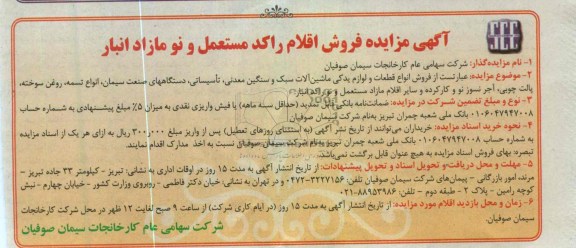 مزایده
آگهی مزایده فروش اقلام راکد مستعمل و نو مازاد انبار
SCC
۱- نام مزایده‌گذار: شرکت سهامی عام کارخانجات سیمان صوفیان
۲- موضوع مزایده: عبارتست از فروش انواع قطعات و لوازم یدکی ماشین‌آلات سبک و سنگین معدنی، تأسیساتی، دستگاههای صنعت سیمان، انواع تسمه، روغن سوخته،
پالت چوبی، آجر نسوز نو و کارکرده و سایر اقلام مازاد مستعمل و نو راکد انبار.
۳- نوع و مبلغ تضمین شرکت در مزایده: ضمانت‌نامه بانکی قابل تمدید (حداقل سه ماهه) یا فیش واریزی نقدی به میزان ۵٪ مبلغ پیشنهادی به شماره حساب
۰۱۰۶۰۴۷۹۴۷۰۰۸ بانک ملی شعبه چمران تبریز به‌نام شرکت سیمان صوفیان
۴- نحوه خرید اسناد مزایده: خریداران می‌توانند از تاریخ نشر آگهی (به استثنای روزهای تعطیل) پس از واریز مبلغ ۳۰۰,۰۰۰ ریال به ازای هر یک از اسناد مزایده
به شماره حساب ۰۱۰۶۰۴۷۹۴۷۰۰۸ بانک ملی شعبه چمران تبریز به‌نام شرکت سیمان صوفیان نسبت به اخذ مدارک اقدام نمایند.
تبصره: بهای فروش اسناد مزایده به هیچ عنوان قابل برگشت نمی‌باشد.
۵- مهلت و محل دریافت و تحویل اسناد و تحویل پیشنهادات: از تاریخ انتشار آگهی به مدت ۱۵ روز در اوقات اداری به نشانی: تبریز - کیلومتر ۳۳ جاده تبریز -
مرند، امور بازرگانی - پیمان‌های شرکت سیمان صوفیان تلفن: ۳۲۲۷۱۵۶-۰۴۷۲ و در تهران به نشانی: خیابان دکتر فاطمی - روبروی وزارت کشور - خیابان چهارم - نبش
کوچه رامین - پلاک ۲ - طبقه دوم - تلفن: ۸۸۹۵۳۹۸۶-۰۲۱
۶- زمان و محل بازدید اقلام مورد مزایده: از تاریخ انتشار آگهی به مدت ۱۵ روز (در ایام کاری شرکت) از ساعت ۹ صبح لغایت ۱۲ ظهر در محل شرکت کارخانجات
سیمان صوفیان.
شرکت سهامی عام کارخانجات سیمان صوفیان